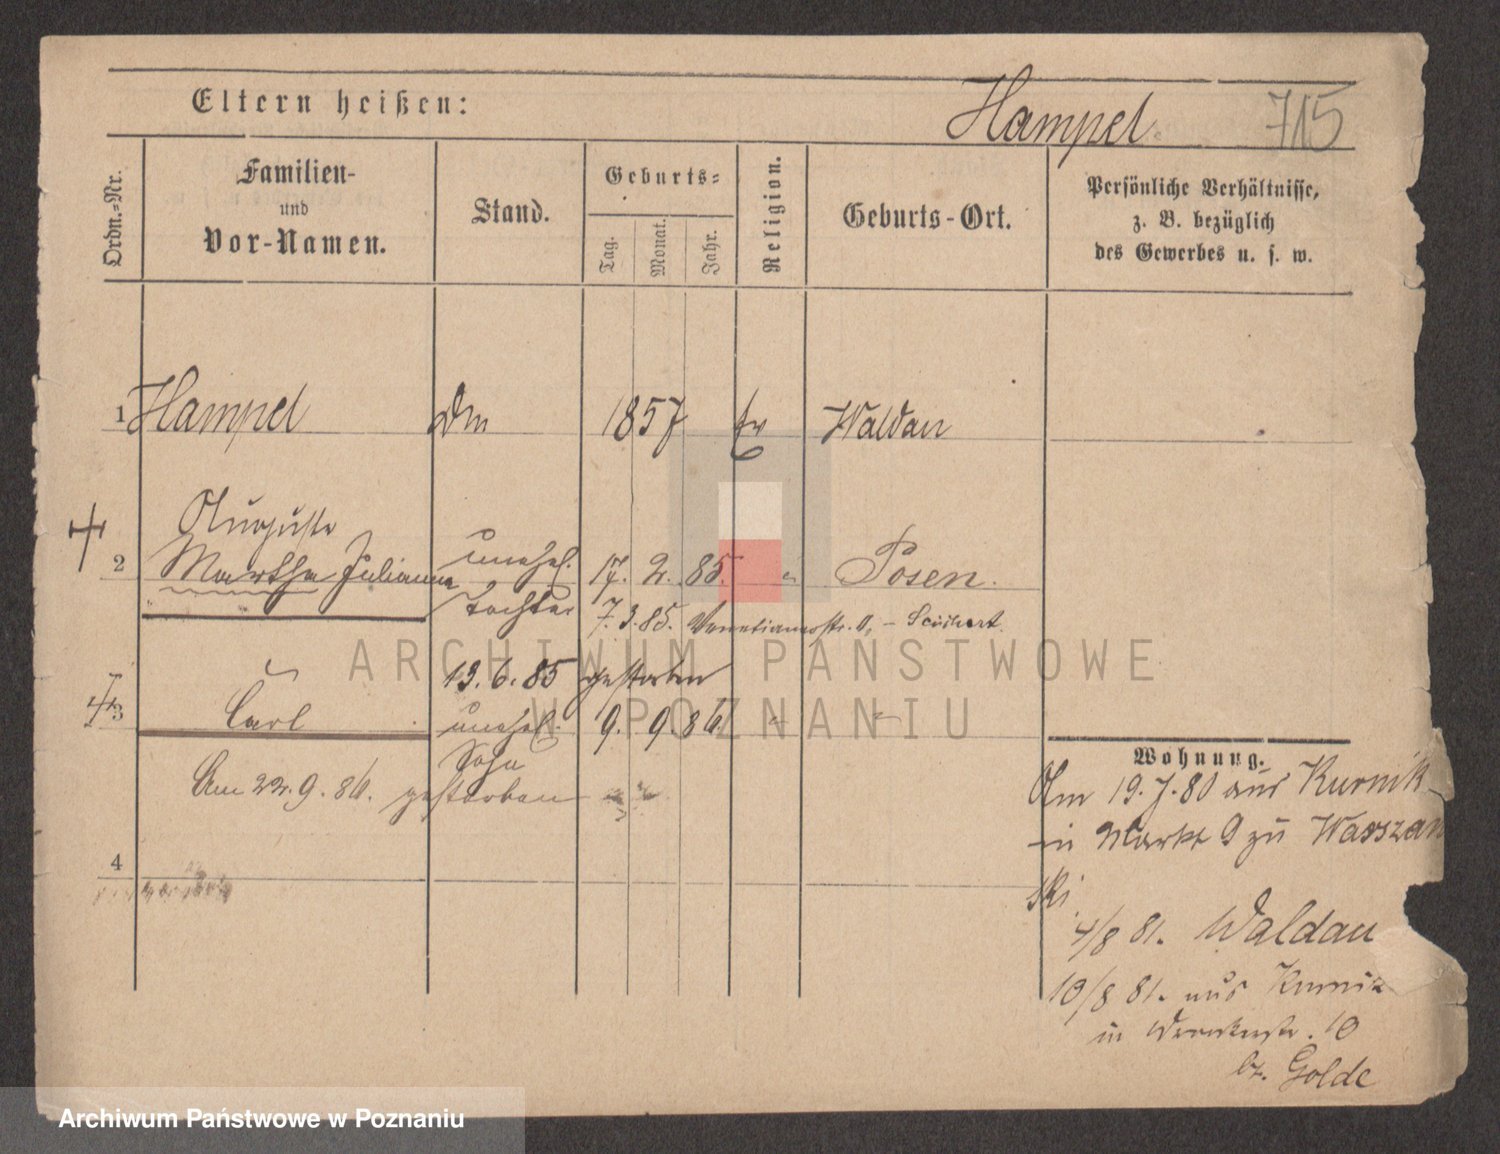 Eltern heißen:
Hampel
715
Ordn.-Nr.
Familien-
und
Vor-Namen.
Stand.
Geburts-
Tag.
Monat.
Jahr.
Religion.
Geburts-Ort.
Persönliche Verhältnisse,
z. B. bezüglich
des Gewerbes u. s. w.
1 Hampel 1857 Ev Waldau
Auguste
2 Martha Julianna unehel. 17. 2. 85. " Posen.
Tochter 7. 3. 85. Venetianerstr.
13. 6. 85 gestorben
3 Carl unehel. 9. 9. 86 " "
Sohn
Am 22. 9. 86. gestorben
4
Wohnung.
Am 19. 7. 80 aus Kurnik
in Markt 9 zu Warszaw
ski
4/8 81. Waldau
10/8 81. aus Kurnik
in 10
bz. Golde
ARCHIWUM PAŃSTWOWE
W POZNANIU
Archiwum Państwowe w Poznaniu